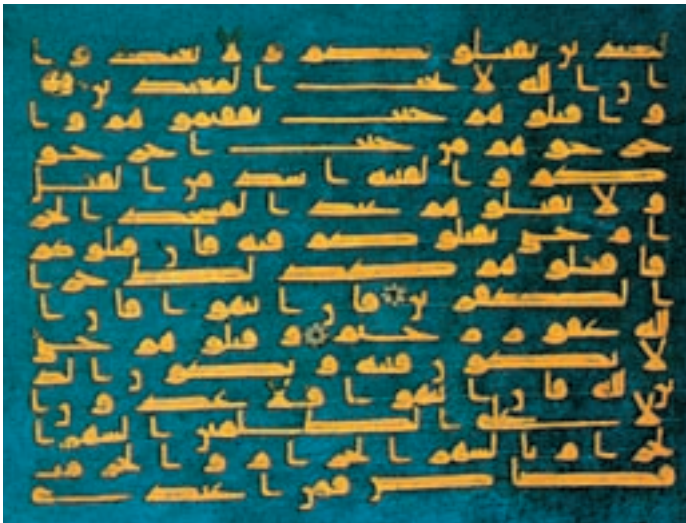 لذين يقتلونكم ولا تعتدوا
ان الله لا يحب المعتدين
واقتلوهم حيث ثقفتموهم وا
خرجوهم من حيث اخرجو
كم والفتنة اشد من القتل
ولا تقتلوهم عند المسجد الحر
ام حتى يقتلوكم فيه فان قتلوكم
فاقتلوهم كذلك جزا
الكفرين فان انتهوا فان ا
لله غفور رحيم وقتلوهم حتى
لا تكون فتنة ويكون الد
ين لله فان انتهوا فلا عدون ا
لا على الظلمين الشهر ا
لحرام بالشهر الحرام والحرمت
قصاص فمن اعتدى ع